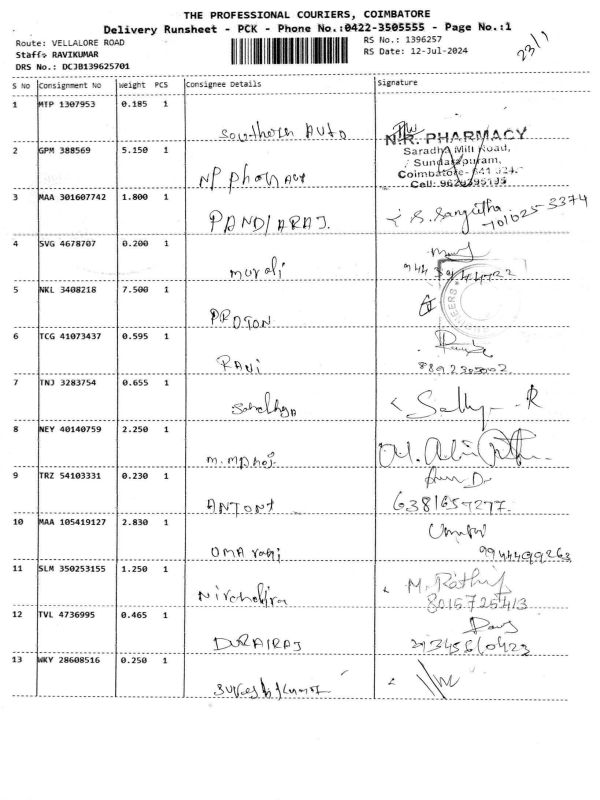 THE PROFESSIONAL COURIERS, COIMBATORE
Delivery Runsheet - PCK - Phone No.:0422-3505555 - Page No.:1
Route: VELLALORE ROAD
RS No.: 1396257
Staff: RAVIKUMAR
RS Date: 12-Jul-2024
DRS No.: DCJB139625701
23/1
S No Consignment No Weight PCS Consignee Details Signature
1 MTP 1307953 0.185 1
Southern AUTO
2 GPM 388569 5.150 1
N.R. PHARMACY
Saradha Mill Road,
Sundarapuram,
Coimbatore-
Cell: 9629395135
NP
3 MAA 301607742 1.800 1
PANDIARAJ.
S. Sangitha
701625 3374
4 SVG 4678707 0.200 1
murali
5 NKL 3408218 7.500 1
PROTON
6 TCG 41073437 0.595 1
RAVI
7 TNJ 3283754 0.655 1
Sandhya
8 NEY 40140759 2.250 1
M.Manoj
9 TRZ 54103331 0.230 1
ANTONY
6381657277
10 MAA 105419127 2.830 1
UMA rani
9944499263
11 SLM 350253155 1.250 1
M. Rathi
8015725413
12 TVL 4736995 0.465 1
DURAIRAJ
13 WKY 28608516 0.250 1
Sureshkumar